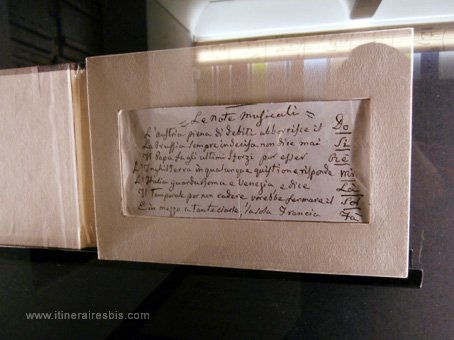 = Le note musicali =
L'Austria piena di debiti abborrisce il Do
La Prussia sempre indecisa non dice mai Si
Il Papa fa gli ultimi sforzi per esser Re
L'Inghilterra in qualunque quistione risponde mi
L'Italia guarda Roma e Venezia, e dice La
Il Temporale per non cadere vorrebbe fermare il Sol
E in mezzo a tante ciarle, la sola Francia Fà
www.itinerairesbis.com